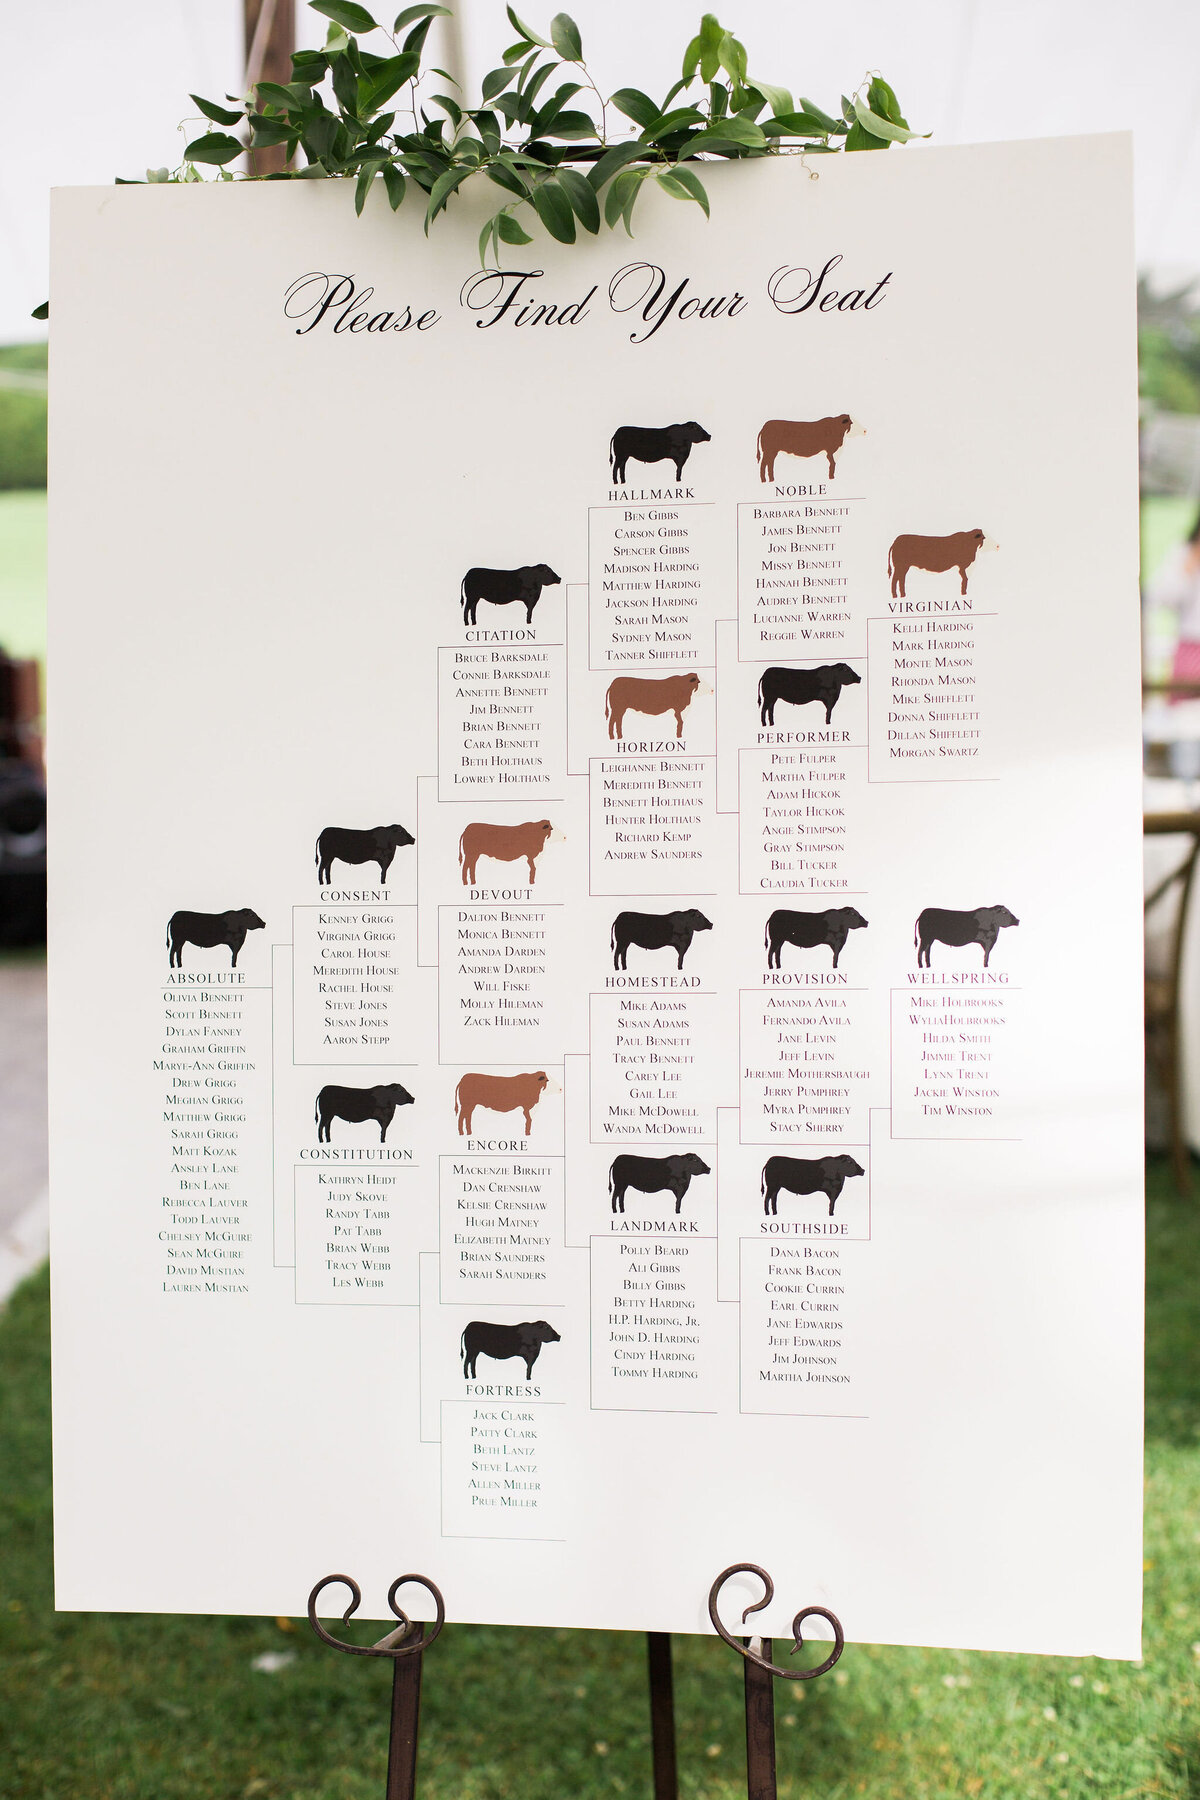 Please Find Your Seat
HALLMARK
BEN GIBBS
CARSON GIBBS
SPENCER GIBBS
MADISON HARDING
MATTHEW HARDING
JACKSON HARDING
SARAH MASON
SYDNEY MASON
TANNER SHIFFLETT
NOBLE
BARBARA BENNETT
JAMES BENNETT
JON BENNETT
MISSY BENNETT
HANNAH BENNETT
AUDREY BENNETT
LUCIANNE WARREN
REGGIE WARREN
VIRGINIAN
KELLI HARDING
MARK HARDING
MONTE MASON
RHONDA MASON
MIKE SHIFFLETT
DONNA SHIFFLETT
DILLAN SHIFFLETT
MORGAN SWARTZ
CITATION
BRUCE BARKSDALE
CONNIE BARKSDALE
ANNETTE BENNETT
JIM BENNETT
BRIAN BENNETT
CARA BENNETT
BETH HOLTHAUS
LOWREY HOLTHAUS
HORIZON
LEIGHANNE BENNETT
MEREDITH BENNETT
BENNETT HOLTHAUS
HUNTER HOLTHAUS
RICHARD KEMP
ANDREW SAUNDERS
PERFORMER
PETE FULPER
MARTHA FULPER
ADAM HICKOK
TAYLOR HICKOK
ANGIE STIMPSON
GRAY STIMPSON
BILL TUCKER
CLAUDIA TUCKER
CONSENT
KENNEY GRIGG
VIRGINIA GRIGG
CAROL HOUSE
MEREDITH HOUSE
RACHEL HOUSE
STEVE JONES
SUSAN JONES
AARON STEPP
DEVOUT
DALTON BENNETT
MONICA BENNETT
AMANDA DARDEN
ANDREW DARDEN
WILL FISKE
MOLLY HILEMAN
ZACK HILEMAN
ABSOLUTE
OLIVIA BENNETT
SCOTT BENNETT
DYLAN FANNEY
GRAHAM GRIFFIN
MARYE-ANN GRIFFIN
DREW GRIGG
MEGHAN GRIGG
MATTHEW GRIGG
SARAH GRIGG
MATT KOZAK
ANSLEY LANE
BEN LANE
REBECCA LAUVER
TODD LAUVER
CHELSEY MCGUIRE
SEAN MCGUIRE
DAVID MUSTIAN
LAUREN MUSTIAN
HOMESTEAD
MIKE ADAMS
SUSAN ADAMS
PAUL BENNETT
TRACY BENNETT
CAREY LEE
GAIL LEE
MIKE MCDOWELL
WANDA MCDOWELL
PROVISION
AMANDA AVILA
FERNANDO AVILA
JANE LEVIN
JEFF LEVIN
JEREMIE MOTHERSBAUGH
JERRY PUMPHREY
MYRA PUMPHREY
STACY SHERRY
WELLSPRING
MIKE HOLBROOKS
WYLIAHOLBROOKS
HILDA SMITH
JIMMIE TRENT
LYNN TRENT
JACKIE WINSTON
TIM WINSTON
CONSTITUTION
KATHRYN HEIDT
JUDY SKOVE
RANDY TABB
PAT TABB
BRIAN WEBB
TRACY WEBB
LES WEBB
ENCORE
MACKENZIE BIRKITT
DAN CRENSHAW
KELSIE CRENSHAW
HUGH MATNEY
ELIZABETH MATNEY
BRIAN SAUNDERS
SARAH SAUNDERS
LANDMARK
POLLY BEARD
ALI GIBBS
BILLY GIBBS
BETTY HARDING
H.P. HARDING, JR.
JOHN D. HARDING
CINDY HARDING
TOMMY HARDING
SOUTHSIDE
DANA BACON
FRANK BACON
COOKIE CURRIN
EARL CURRIN
JANE EDWARDS
JEFF EDWARDS
JIM JOHNSON
MARTHA JOHNSON
FORTRESS
JACK CLARK
PATTY CLARK
BETH LANTZ
STEVE LANTZ
ALLEN MILLER
PRUE MILLER